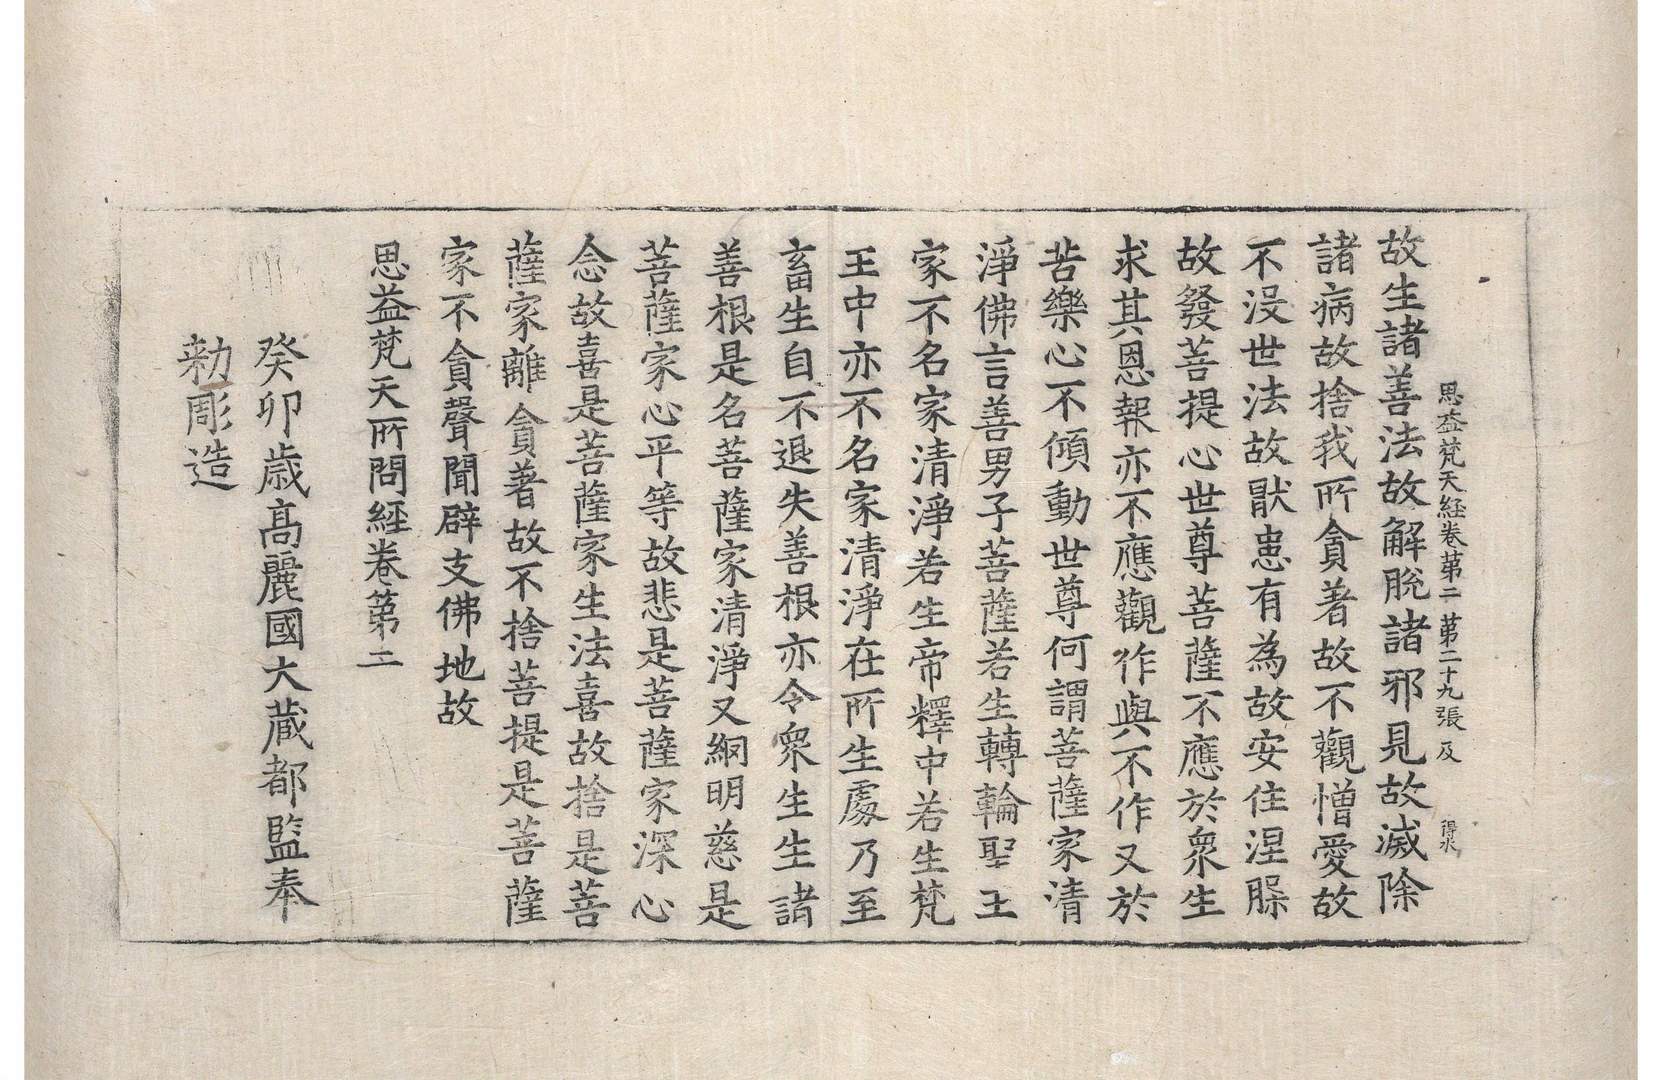 思益梵天經卷第二 第二十九張 及 得水
故生諸善法故解脫諸邪見故滅除
諸病故捨我所貪著故不觀憎愛故
不沒世法故猒患有為故安住涅槃
故發菩提心世尊菩薩不應於衆生
求其恩報亦不應觀作與不作又於
苦樂心不傾動世尊何謂菩薩家清
淨佛言善男子菩薩若生轉輪聖王
家不名家清淨若生帝釋中若生梵
王中亦不名家清淨在所生處乃至
畜生自不退失善根亦令衆生生諸
善根是名菩薩家清淨又網明慈是
菩薩家心平等故悲是菩薩家深心
念故喜是菩薩家生法喜故捨是菩
薩家離貪著故不捨菩提是菩薩
家不貪聲聞辟支佛地故
思益梵天所問經卷第二
癸卯歲高麗國大藏都監奉
勑彫造